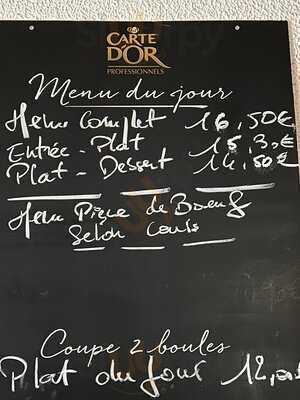 CARTE
D'OR
PROFESSIONNELS
Menu du jour
Menu Complet 16,50€
Entrée - Plat 15,30€
Plat - Dessert 14,50€
Menu Pièce de Boeuf
Selon Cours
Coupe 2 boules
Plat du Jour 12,